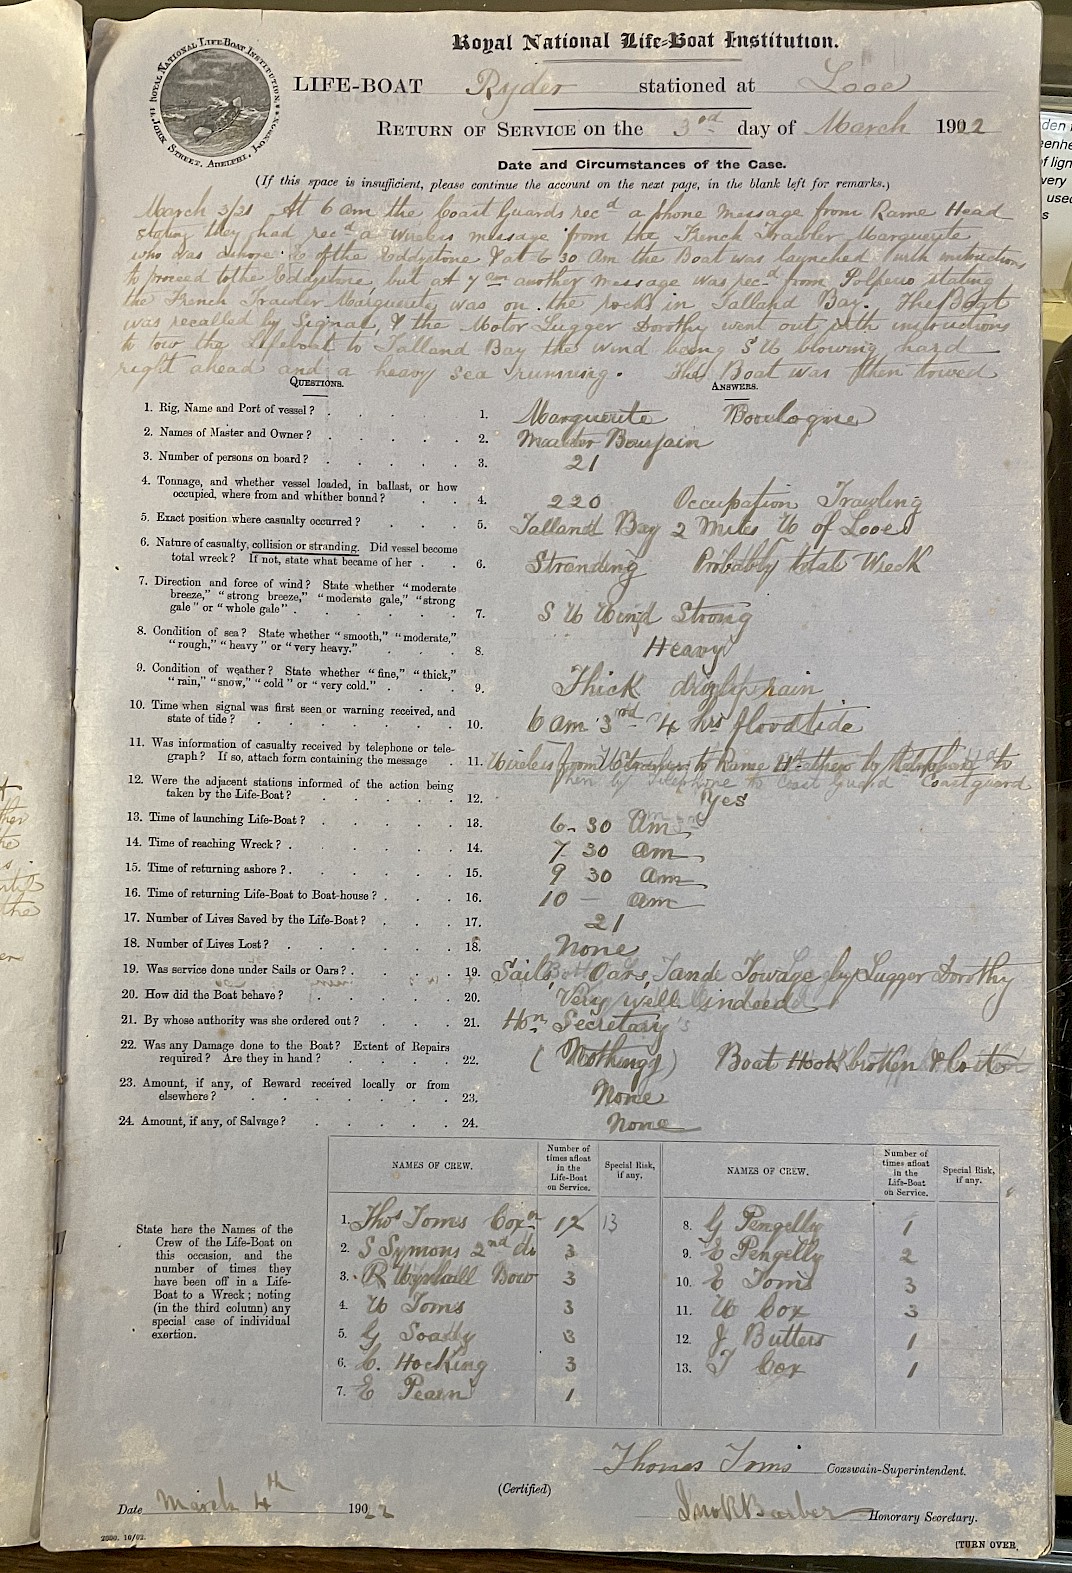 Royal National Life-Boat Institution.
ROYAL NATIONAL LIFE-BOAT INSTITUTION, JOHN STREET, ADELPHI, LONDON.
LIFE-BOAT Ryder stationed at Looe
RETURN OF SERVICE on the 3rd day of March 1922
Date and Circumstances of the Case.
(If this space is insufficient, please continue the account on the next page, in the blank left for remarks.)
March 3/21 At 6 am the Coast Guards recd a phone message from Rame Head
stating they had recd a wireless message from the French Trawler Marguerite
who was ashore of the Eddystone & at 6 30 Am the Boat was launched with instructions
to proceed to the Eddystone, but at 7 am another message was recd from Polpero stating
the French Trawler Marguerite was on the rocks in Talland Bay. The Boat
was recalled by Signal, & the Motor Lugger Dorothy went out with instructions
to tow the Lifeboat to Talland Bay the wind being S W blowing hard
right ahead and a heavy sea running. The Boat was then towed
QUESTIONS. ANSWERS.
1. Rig, Name and Port of vessel? 1. Marguerite Boulogne
2. Names of Master and Owner? 2. Master
3. Number of persons on board? 3. 21
4. Tonnage, and whether vessel loaded, in ballast, or how
occupied, where from and whither bound? 4. 220 Occupation Trawling
5. Exact position where casualty occurred? 5. Talland Bay 2 Miles W of Looe
6. Nature of casualty, collision or stranding. Did vessel become
total wreck? If not, state what became of her 6. Stranding Probably total Wreck
7. Direction and force of wind? State whether "moderate
breeze," "strong breeze," "moderate gale," "strong
gale" or "whole gale" 7. S W Wind Strong
8. Condition of sea? State whether "smooth," "moderate,"
"rough," "heavy" or "very heavy." 8. Heavy
9. Condition of weather? State whether "fine," "thick,"
"rain," "snow," "cold" or "very cold." 9. Thick drizly rain
10. Time when signal was first seen or warning received, and
state of tide? 10. 6 am 3rd 4 hrs flood tide
11. Was information of casualty received by telephone or tele-
graph? If so, attach form containing the message 11. Wireless from to Rame Hd then by to
then by Telephone to Coast Guard Coastguard
12. Were the adjacent stations informed of the action being
taken by the Life-Boat? 12. Yes
13. Time of launching Life-Boat? 13. 6-30 Am
14. Time of reaching Wreck? 14. 7 30 am
15. Time of returning ashore? 15. 9 30 am
16. Time of returning Life-Boat to Boat-house? 16. 10 - am
17. Number of Lives Saved by the Life-Boat? 17. 21
18. Number of Lives Lost? 18. None
19. Was service done under Sails or Oars? 19. Sails, Oars, and Towage by Lugger Dorothy
20. How did the Boat behave? 20. Very well indeed
21. By whose authority was she ordered out? 21. Hon Secretary
22. Was any Damage done to the Boat? Extent of Repairs
required? Are they in hand? 22. (Nothing) Boat Hook broken & lost
23. Amount, if any, of Reward received locally or from
elsewhere? 23. None
24. Amount, if any, of Salvage? 24. None
NAMES OF CREW. Number of times afloat in the Life-Boat on Service. Special Risk, if any. NAMES OF CREW. Number of times afloat in the Life-Boat on Service. Special Risk, if any.
State here the Names of the
Crew of the Life-Boat on
this occasion, and the
number of times they
have been off in a Life-
Boat to a Wreck; noting
(in the third column) any
special case of individual
exertion.
1. Thos Toms Coxn 12 13
2. S Symons 2nd do 3
3. R Wynhall Bow 3
4. W Toms 3
5. G Soady 3
6. C. Hocking 3
7. E Pearn 1
8. G Pengelly 1
9. E Pengelly 2
10. E Toms 3
11. W Cox 3
12. J Butters 1
13. T Cox 1
Thomas Toms Coxswain-Superintendent.
(Certified)
Date March 4th 1922 Jno R Barber Honorary Secretary.
2500. 10/02.
[TURN OVER.